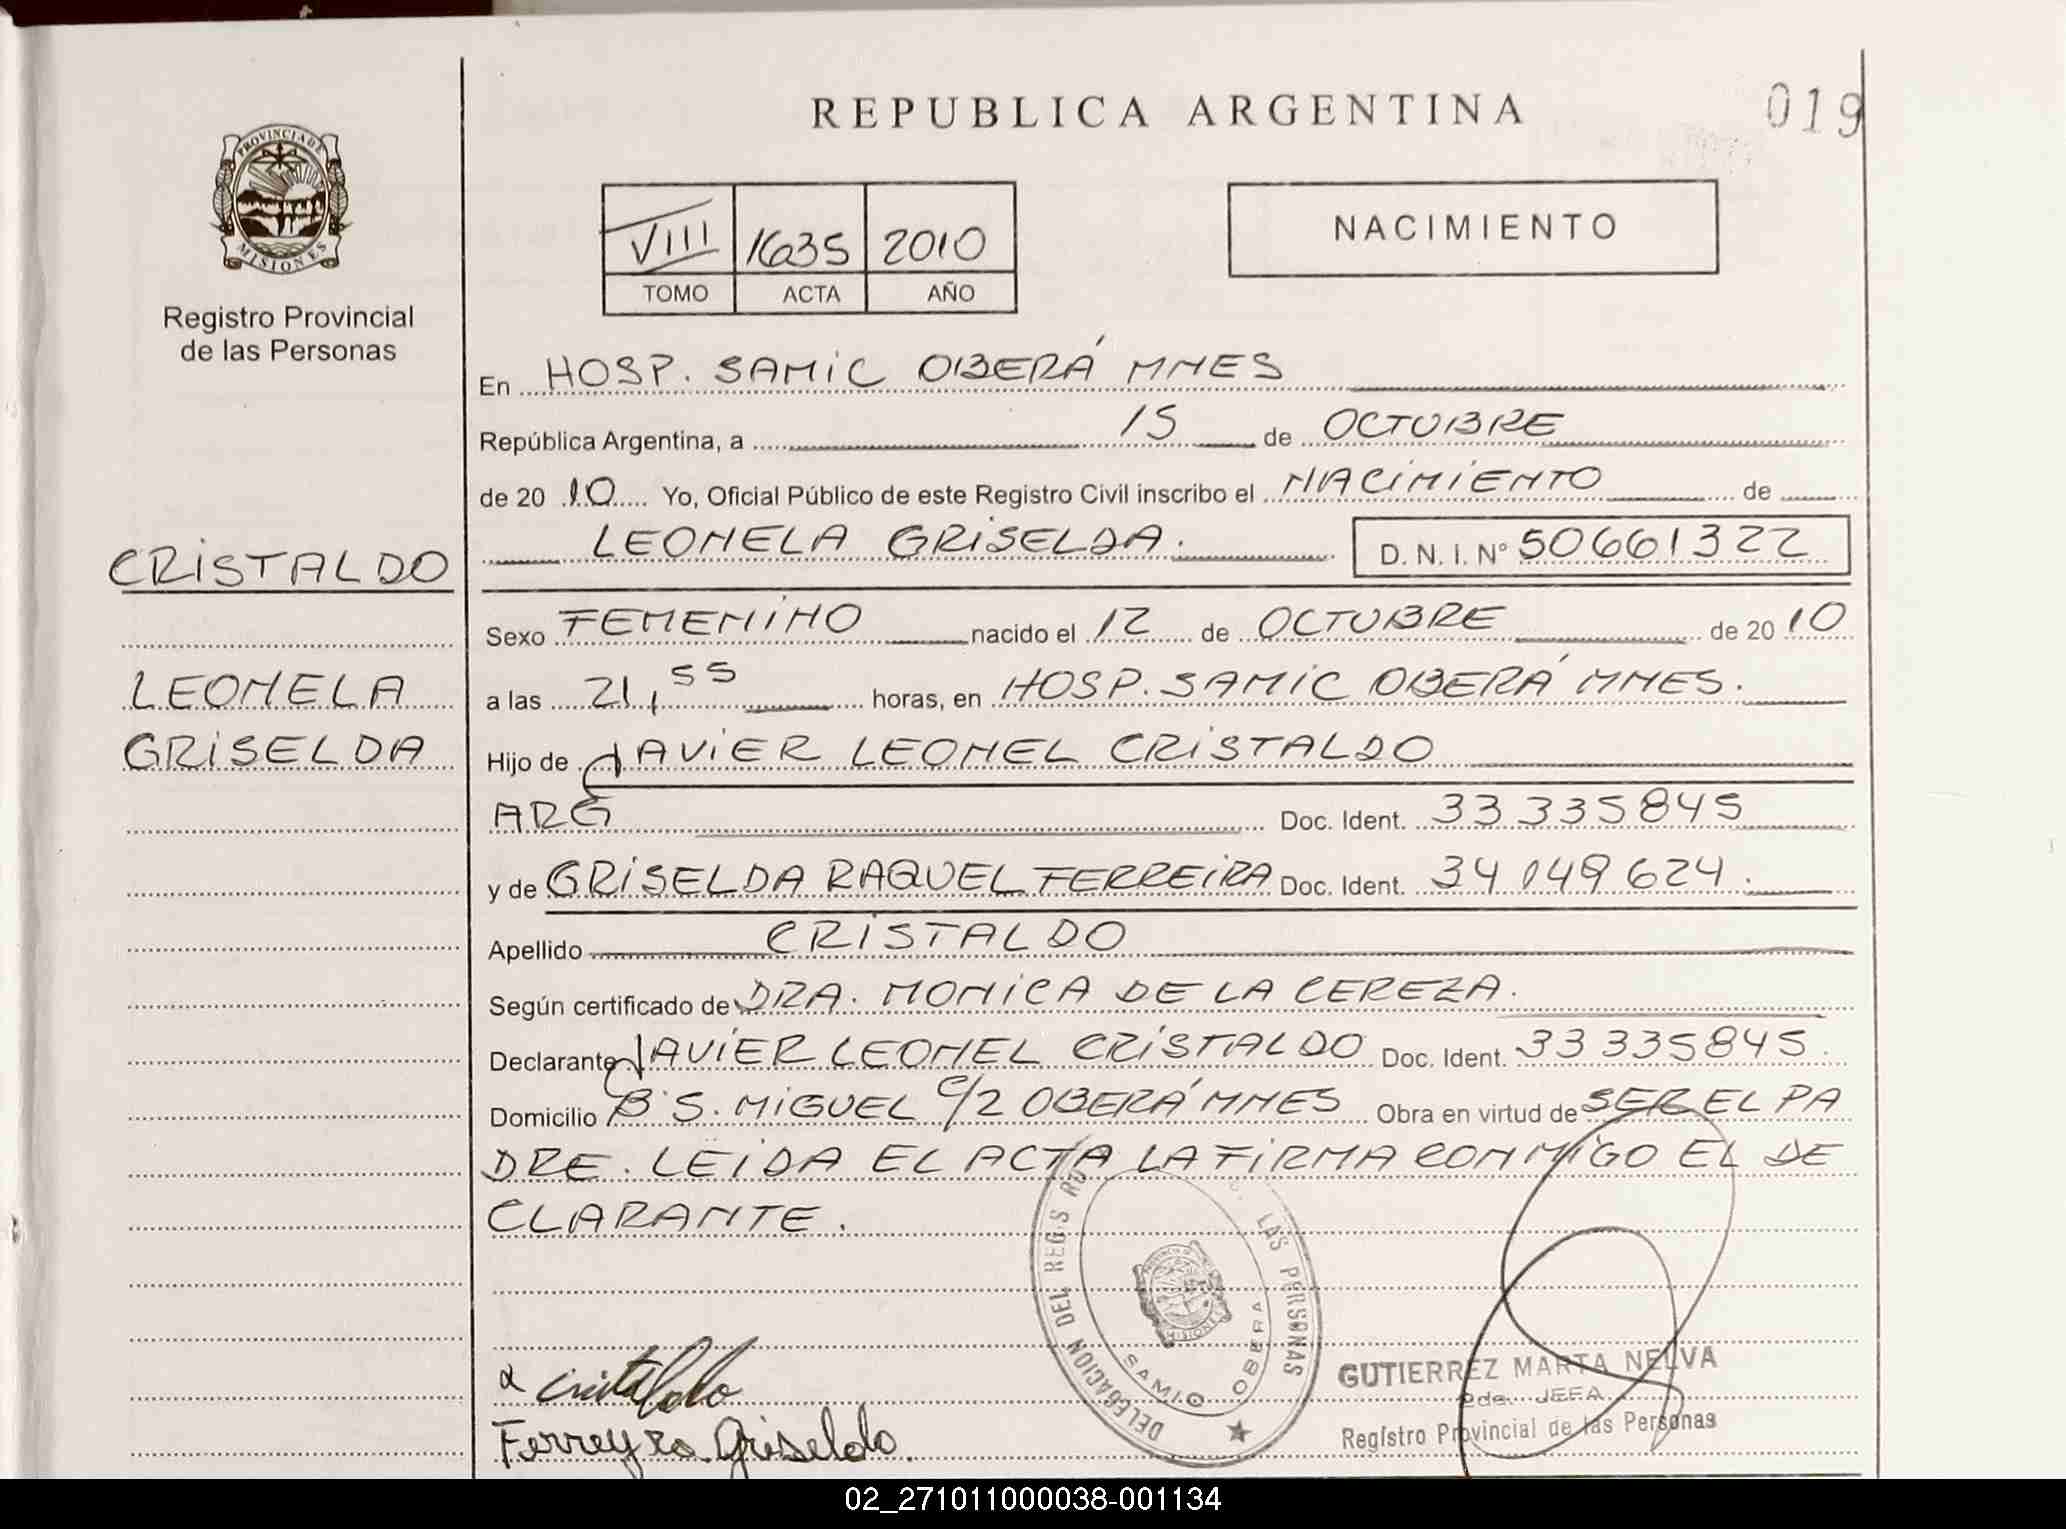 REPUBLICA ARGENTINA
019
PROVINCIA DE
MISIONES
Registro Provincial
de las Personas
VIII 1635 2010
TOMO ACTA AÑO
NACIMIENTO
En HOSP. SAMIC OBERÁ MNES
República Argentina, a 15 de OCTUBRE
de 20 10 Yo, Oficial Público de este Registro Civil inscribo el NACIMIENTO de
LEONELA GRISELDA. D. N. I. Nº 50661322
CRISTALDO
LEONELA
GRISELDA
Sexo FEMENINO nacido el 12 de OCTUBRE de 20 10
a las 21,55 horas, en HOSP. SAMIC OBERÁ MNES.
Hijo de JAVIER LEONEL CRISTALDO
ARG Doc. Ident. 33 335845
y de GRISELDA RAQUEL FERREIRA Doc. Ident. 34 049 624.
Apellido CRISTALDO
Según certificado de DRA. MONICA DE LA CEREZA.
Declarante JAVIER LEONEL CRISTALDO Doc. Ident. 33 335845.
Domicilio Bº S. MIGUEL C/2 OBERÁ MNES Obra en virtud de SER EL PA
DRE. LEIDA EL ACTA LA FIRMA CONMIGO EL DE
CLARANTE.
DELEGACION DEL REGIS LAS PERSONAS
MISIONES
SAMIC OBERA
Cristaldo
Ferreyra Griselda
GUTIERREZ MARTA NELVA
2da. JEFA
Registro Provincial de las Personas
02_271011000038-001134